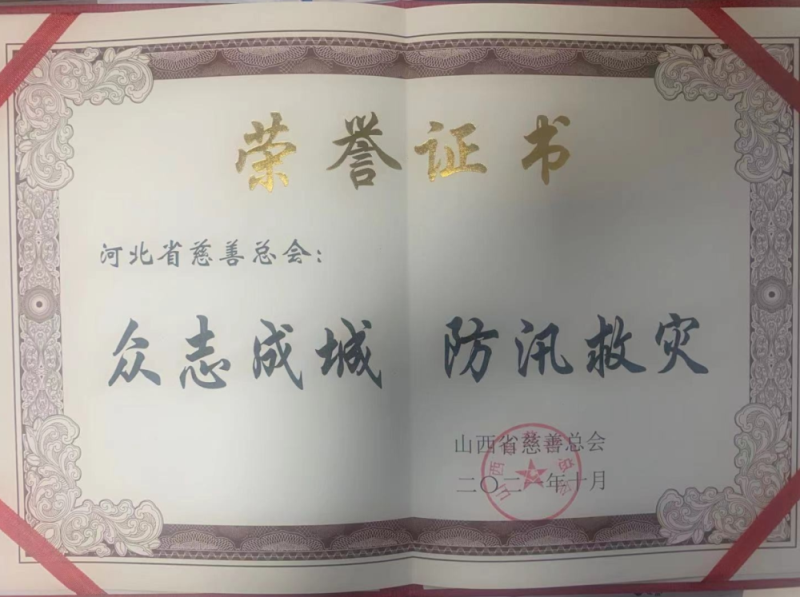 荣誉证书
河北省慈善总会：
众志成城 防汛救灾
山西省慈善总会
二〇二 年十月